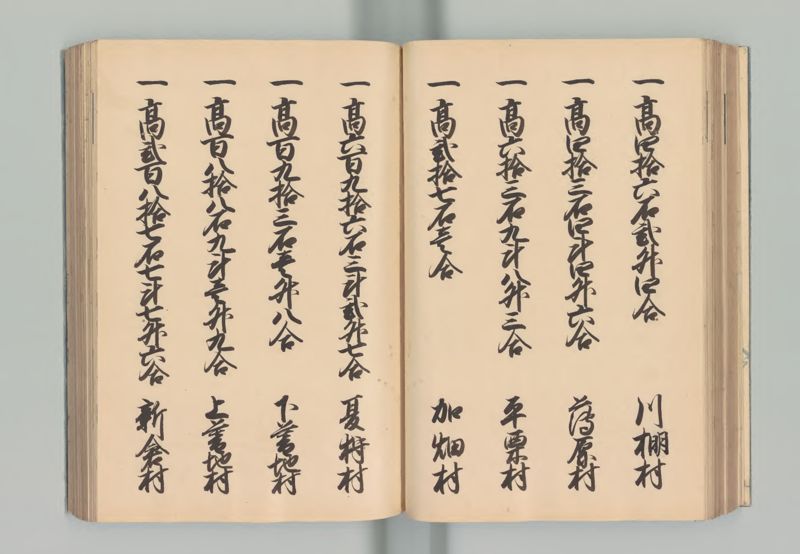 一高四拾六石弐升四合 川棚村
一高四拾三石四斗四升六合 藤原村
一高六拾三石九斗八升三合 平栗村
一高弐拾七石壱合 加畑村
一高六百九拾六石三斗弐升七合 夏狩村
一高百九拾三石壱升八合 下暮地村
一高百八拾八石九斗壱升九合 上暮地村
一高弐百八拾七石七斗七升六合 新倉村